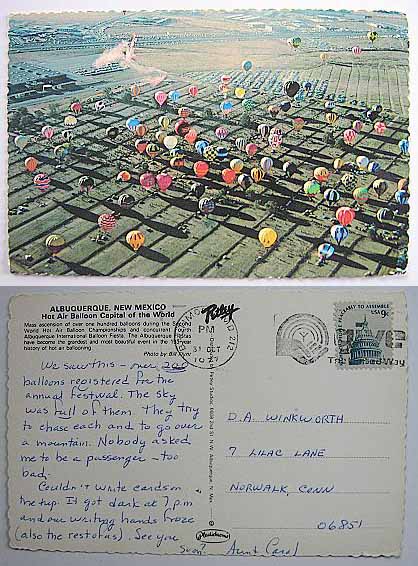 ALBUQUERQUE, NEW MEXICO
Hot Air Balloon Capital of the World
Mass ascension of over one hundred balloons during the Second
World Hot Air Balloon Championships and concurrent Fourth
Albuquerque International Balloon Fiesta. The Albuquerque Fiestas
have become the grandest and most beautiful event in the 193-year
history of hot air ballooning.
Photo by Bill
We saw this – over 200
balloons registered for the
annual festival. The sky
was full of them. They try
to chase each and to go over
a mountain. Nobody asked
me to be a passenger – too
bad.
Couldn't write cards on
the trip. It got dark at 7 p.m
and our writing hands froze
(also the rest of us). See you
soon!
Aunt Carol
Petley
Plastichrome
PM
31 OCT
MD 212
TO ASSEMBLE
USA 9c
D.A. WINKWORTH
7 LILAC LANE
NORWALK, CONN
06851